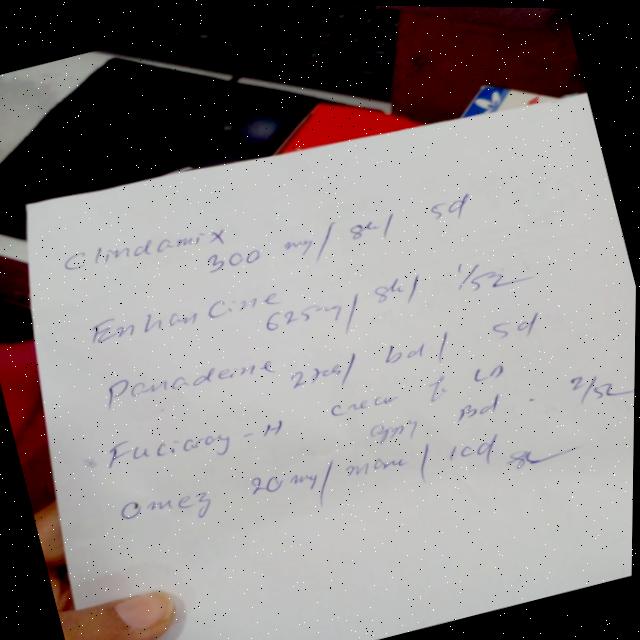 Clindamix
300 mg / 8hl 5d
Enhancine
625mg / 8hl 1/52
Panadeine 2 / bd / 5d
* Fucicoy-H cream to
apply Bd. 2/52
Omez 20 mg / mane / 10d